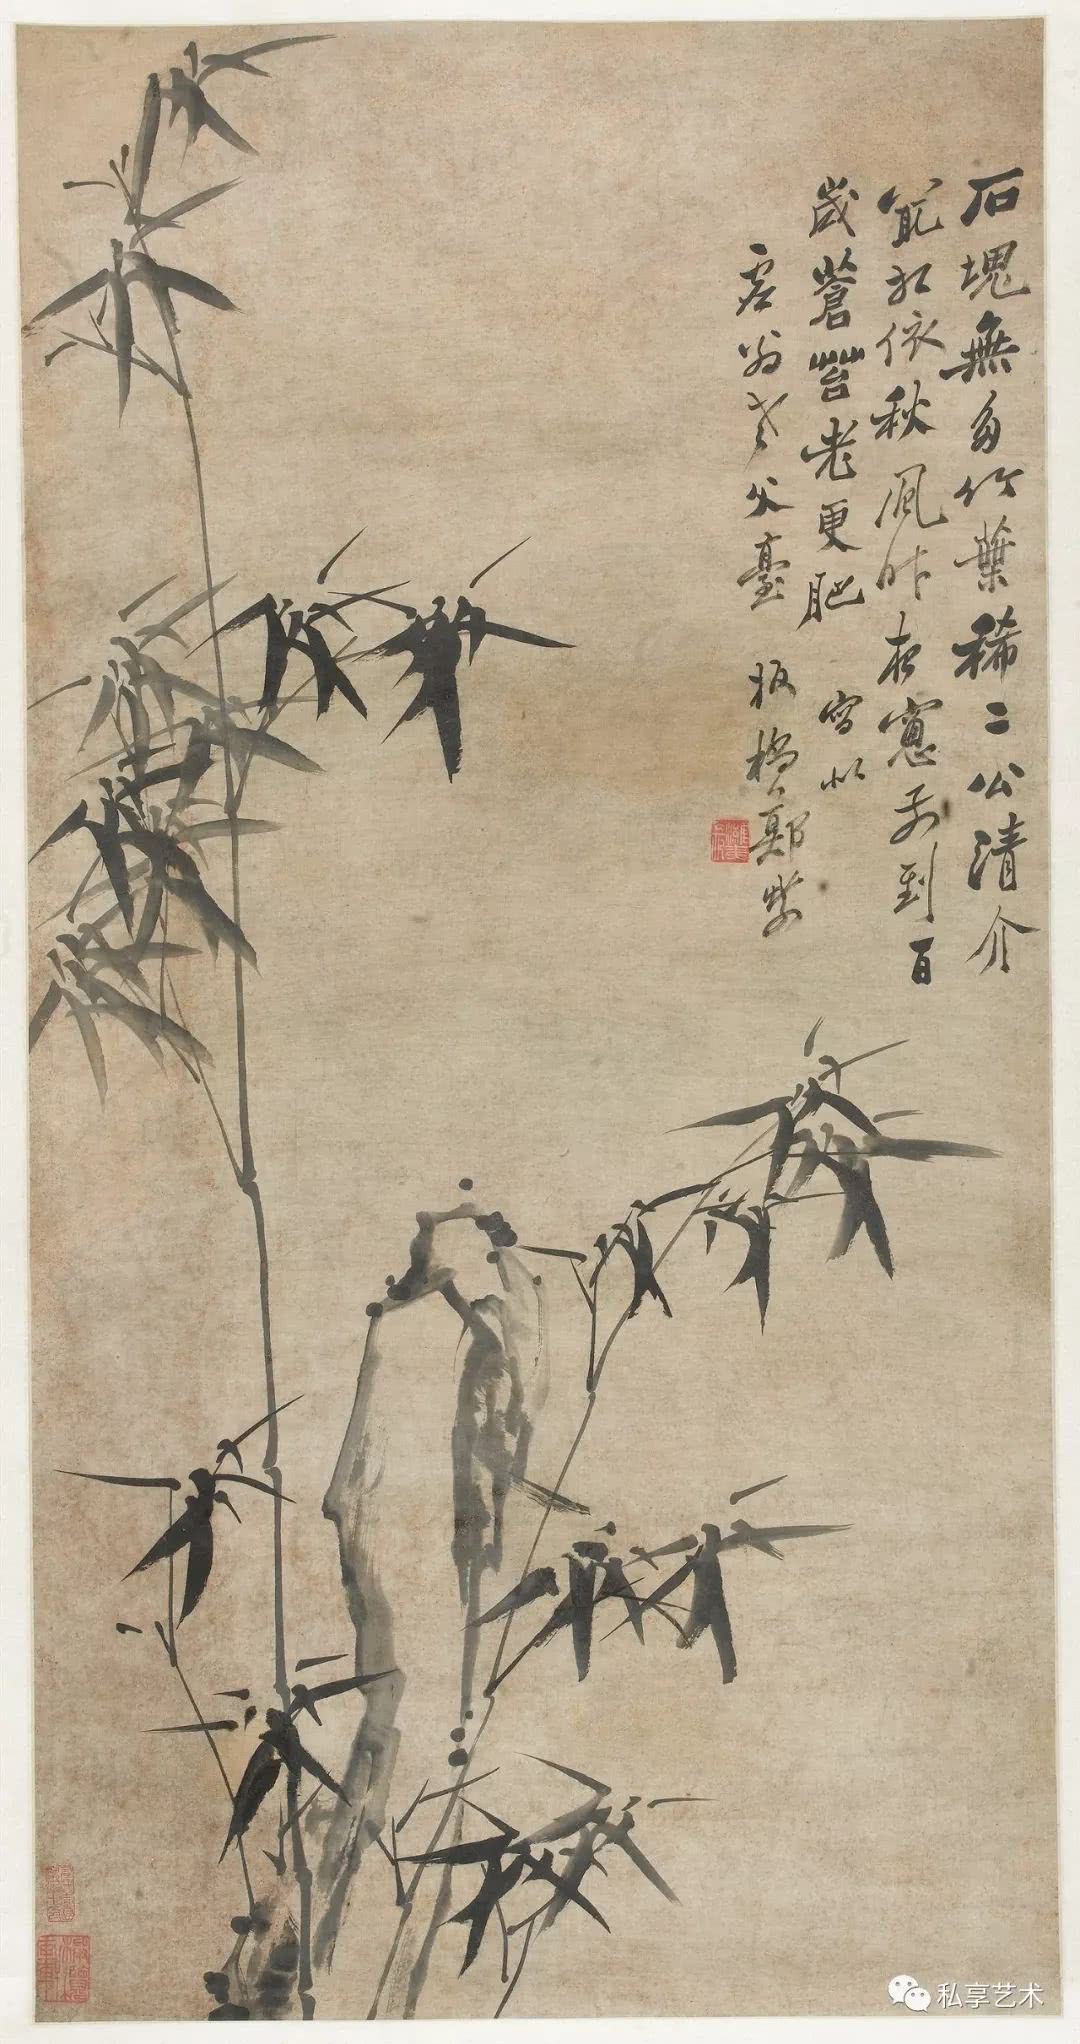 石塊無多竹葉稀二公清介
最相依秋風昨夜窓前到百
歲蒼苔老更肥 寫似
翁老父臺 板橋鄭燮
私享艺术